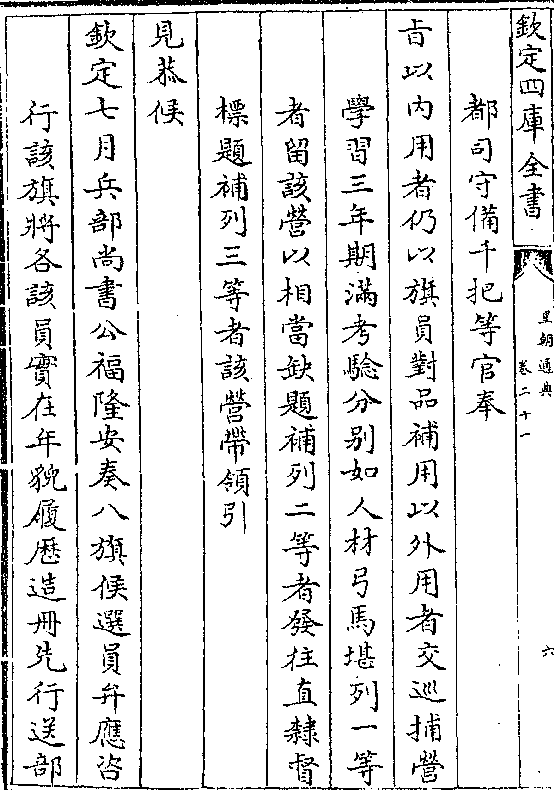 欽定四庫全書
皇朝通典
卷二十一
六
都司守備千把等官奉
旨以內用者仍以旗員對品補用以外用者交巡捕營
學習三年期滿考驗分别如人材弓馬堪列一等
者留該營以相當缺題補列二等者發往直隸督
標題補列三等者該營帶領引
見恭候
欽定七月兵部尚書公福隆安奏八旗候選員弁應咨
行該旗將各該員實在年貌履歷造冊先行送部